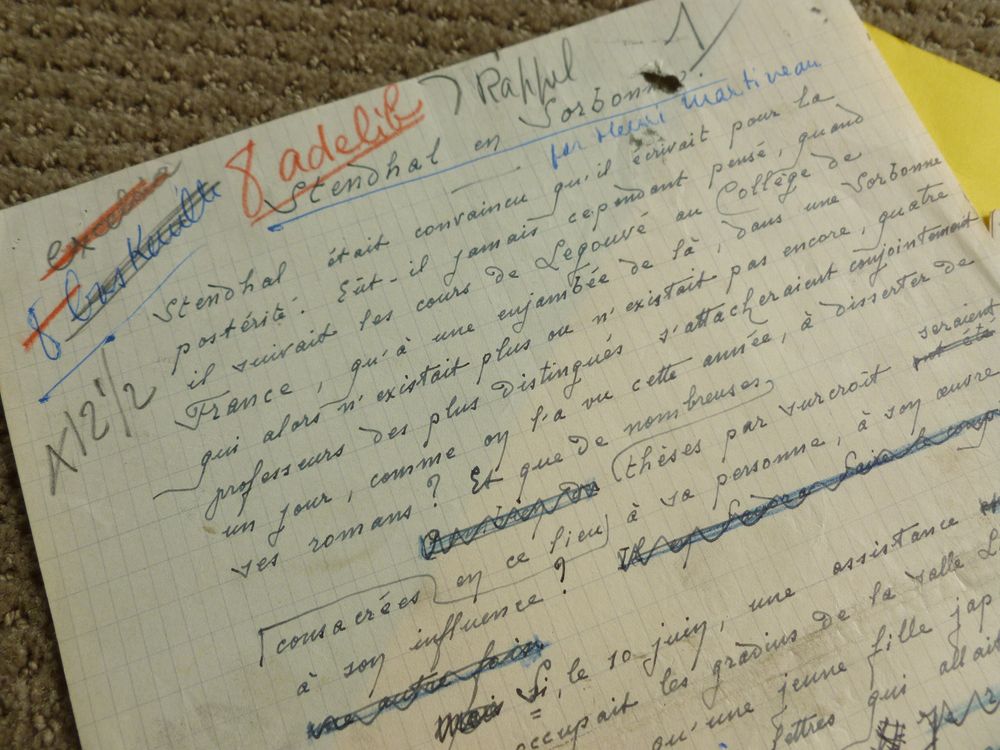 Rappel 1
8 adelik
Stendhal en Sorbonne
par Henri Martineau
8 bas Kaulk
x 12 1/2
Stendhal était convaincu qu'il écrivait pour la
postérité. Eût-il jamais cependant pensé, quand
il suivait les cours de Legouvé au Collège de
France, qu'à une enjambée de là, dans une Sorbonne
qui alors n'existait plus ou n'existait pas encore, quatre
professeurs des plus distingués s'attacheraient conjointement
un jour, comme on l'a vu cette année, à disserter de
ses romans ? Et que de nombreuses
thèses par surcroît seraient
consacrées en ce lieu à sa personne, à son œuvre
à son influence ?
Mais Si, le 10 juin, une assistance
occupait les gradins de la salle L
qu'une jeune fille jap
lettres qui allai